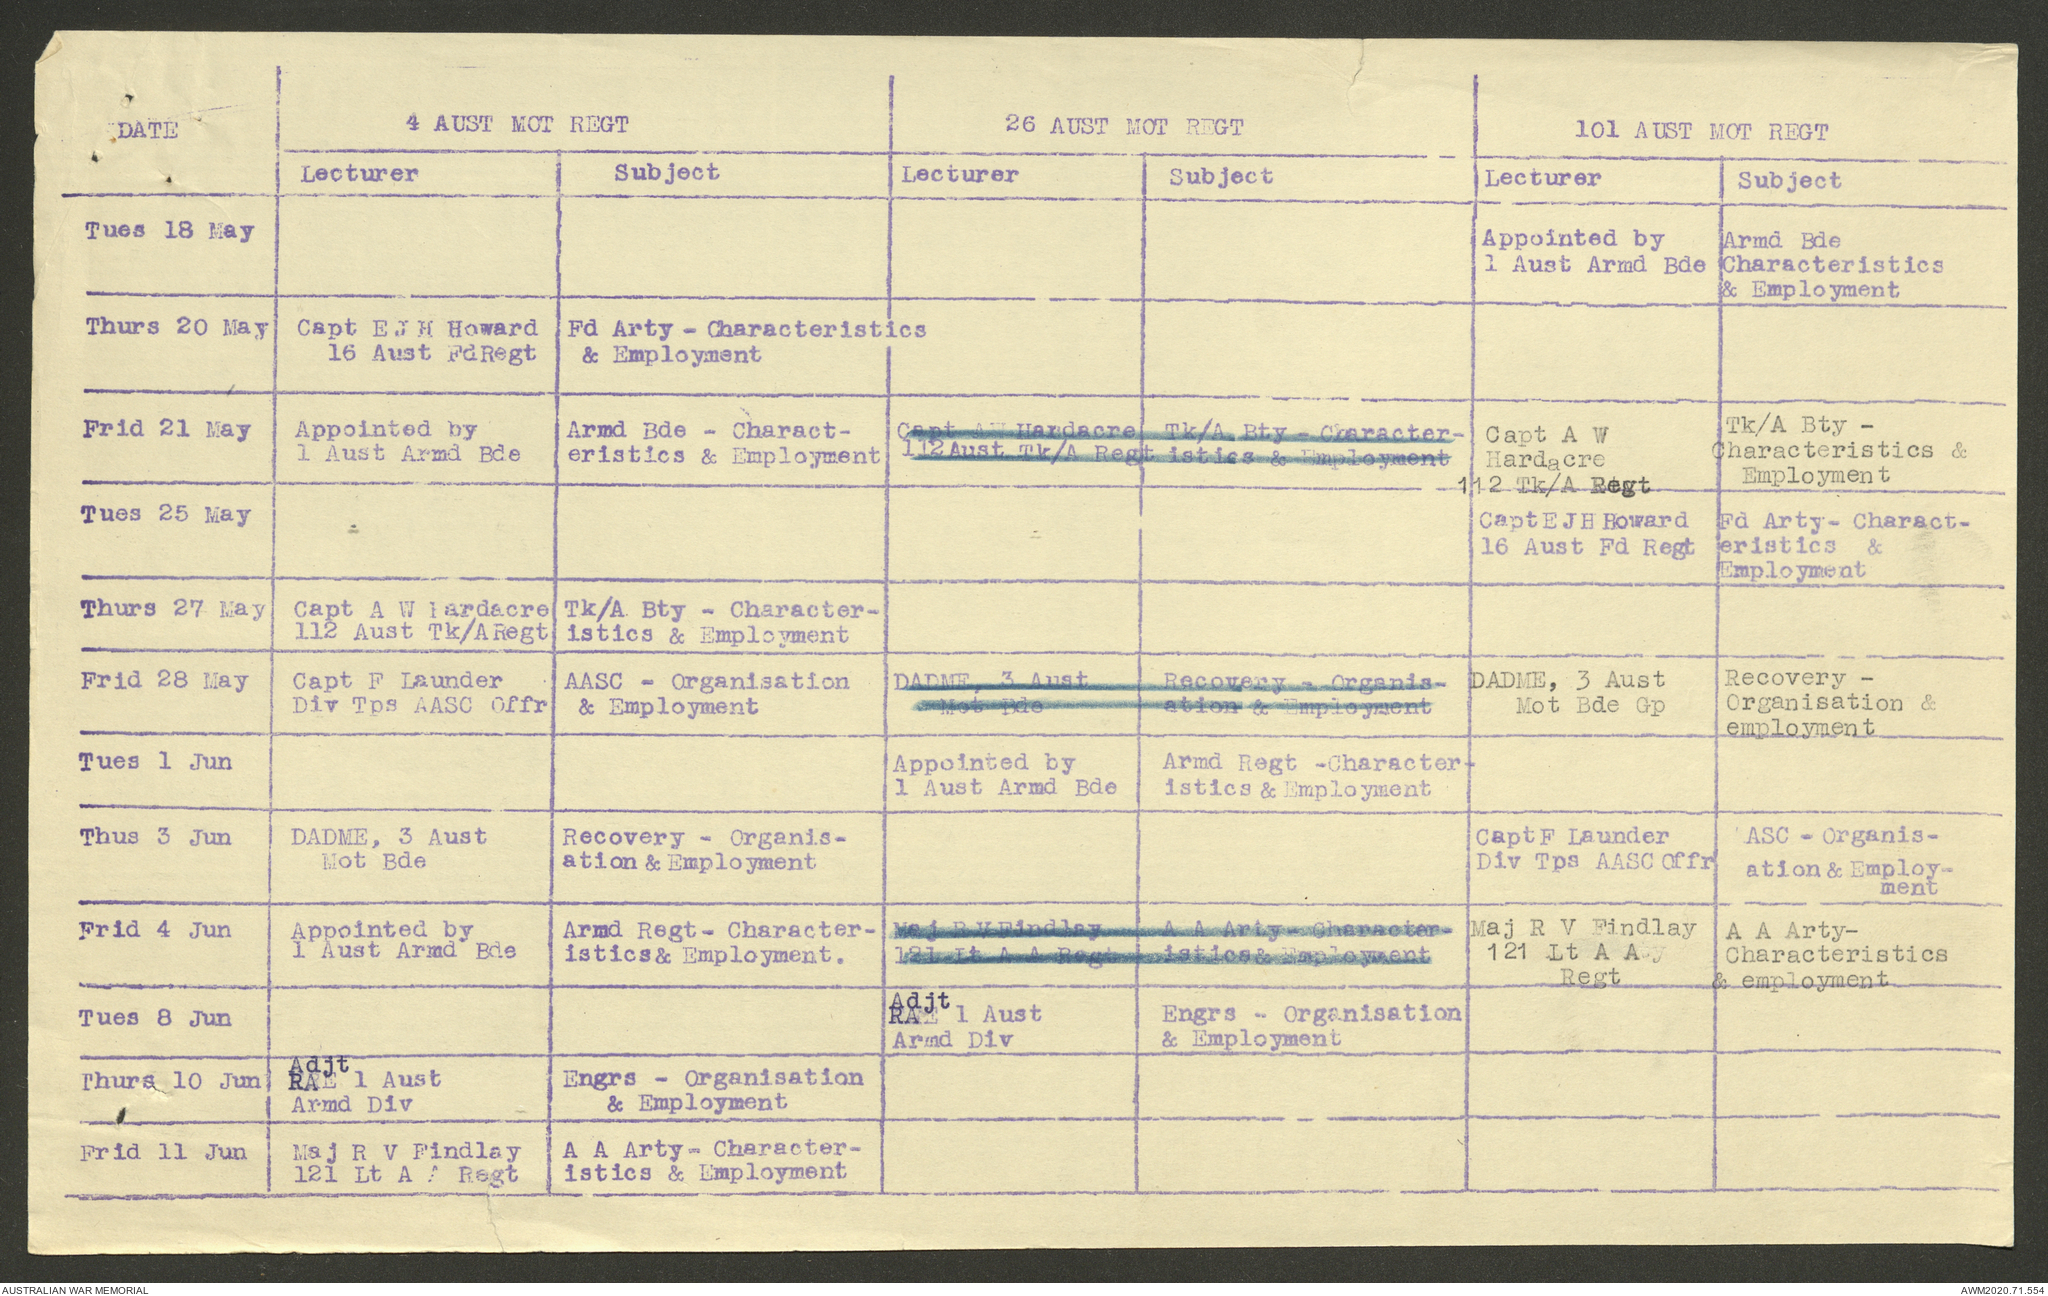 DATE
4 AUST MOT REGT
26 AUST MOT REGT
101 AUST MOT REGT
Lecturer
Subject
Lecturer
Subject
Lecturer
Subject
Tues 18 May
Appointed by
1 Aust Armd Bde
Armd Bde
Characteristics
& Employment
Thurs 20 May
Capt E J H Howard
16 Aust Fd Regt
Fd Arty - Characteristics
& Employment
Frid 21 May
Appointed by
1 Aust Armd Bde
Armd Bde - Charact-
eristics & Employment
Capt A W Hardacre
112 Aust Tk/A Regt
Tk/A Bty - Character-
istics & Employment
Capt A W
Hardacre
112 Tk/A Regt
Tk/A Bty -
Characteristics &
Employment
Tues 25 May
Capt E J H Howard
16 Aust Fd Regt
Fd Arty - Charact-
eristics &
Employment
Thurs 27 May
Capt A W Hardacre
112 Aust Tk/A Regt
Tk/A Bty - Character-
istics & Employment
Frid 28 May
Capt F Launder
Div Tps AASC Offr
AASC - Organisation
& Employment
DADME, 3 Aust
Mot Bde
Recovery - Organis-
ation & Employment
DADME, 3 Aust
Mot Bde Gp
Recovery -
Organisation &
employment
Tues 1 Jun
Appointed by
1 Aust Armd Bde
Armd Regt - Character-
istics & Employment
Thus 3 Jun
DADME, 3 Aust
Mot Bde
Recovery - Organis-
ation & Employment
Capt F Launder
Div Tps AASC Offr
ASC - Organis-
ation & Employ-
ment
Frid 4 Jun
Appointed by
1 Aust Armd Bde
Armd Regt - Character-
istics & Employment.
Maj R V Findlay
121 Lt A A Regt
A A Arty - Character-
istics & Employment
Maj R V Findlay
121 Lt A A
Regt
A A Arty-
Characteristics
& employment
Tues 8 Jun
Adjt
RAE 1 Aust
Armd Div
Engrs - Organisation
& Employment
Thurs 10 Jun
Adjt
RAE 1 Aust
Armd Div
Engrs - Organisation
& Employment
Frid 11 Jun
Maj R V Findlay
121 Lt A A Regt
A A Arty - Character-
istics & Employment
AUSTRALIAN WAR MEMORIAL
AWM2020.71.554